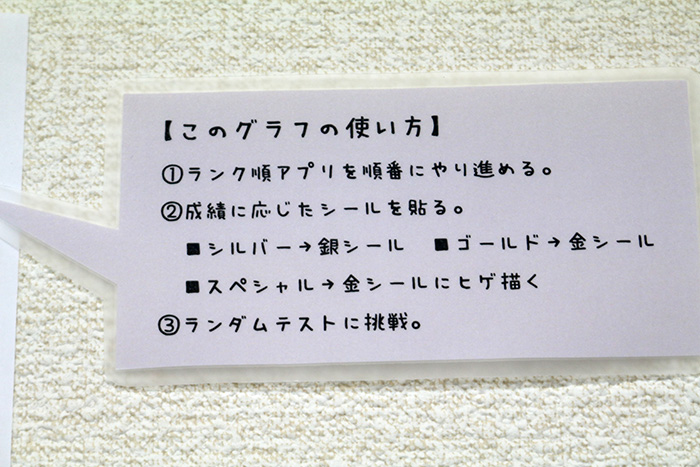 【このグラフの使い方】
①ランク順アプリを順番にやり進める。
②成績に応じたシールを貼る。
■シルバー→銀シール ■ゴールド→金シール
■スペシャル→金シールにヒゲ描く
③ランダムテストに挑戦。